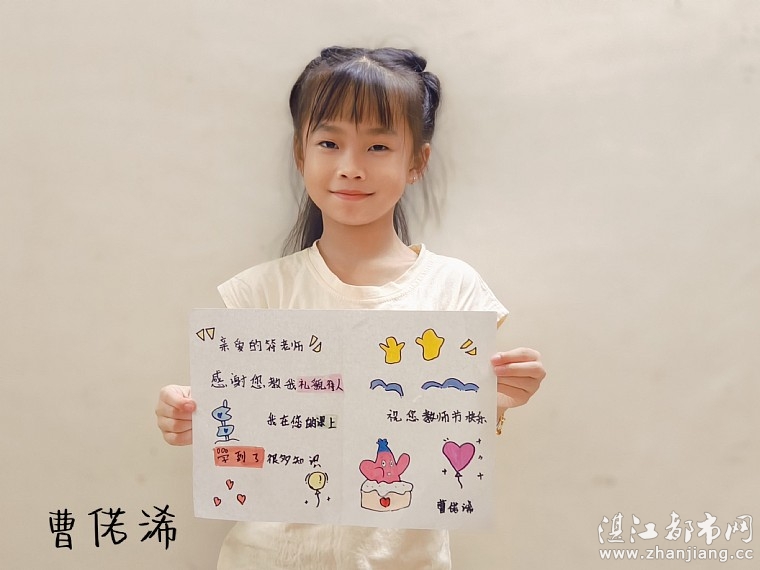 亲爱的符老师
感谢您教我礼貌待人
我在您的课上
学到了很多知识
祝您教师节快乐
曹偌浠
曹偌浠
湛江都市网
www.zhanjiang.cc